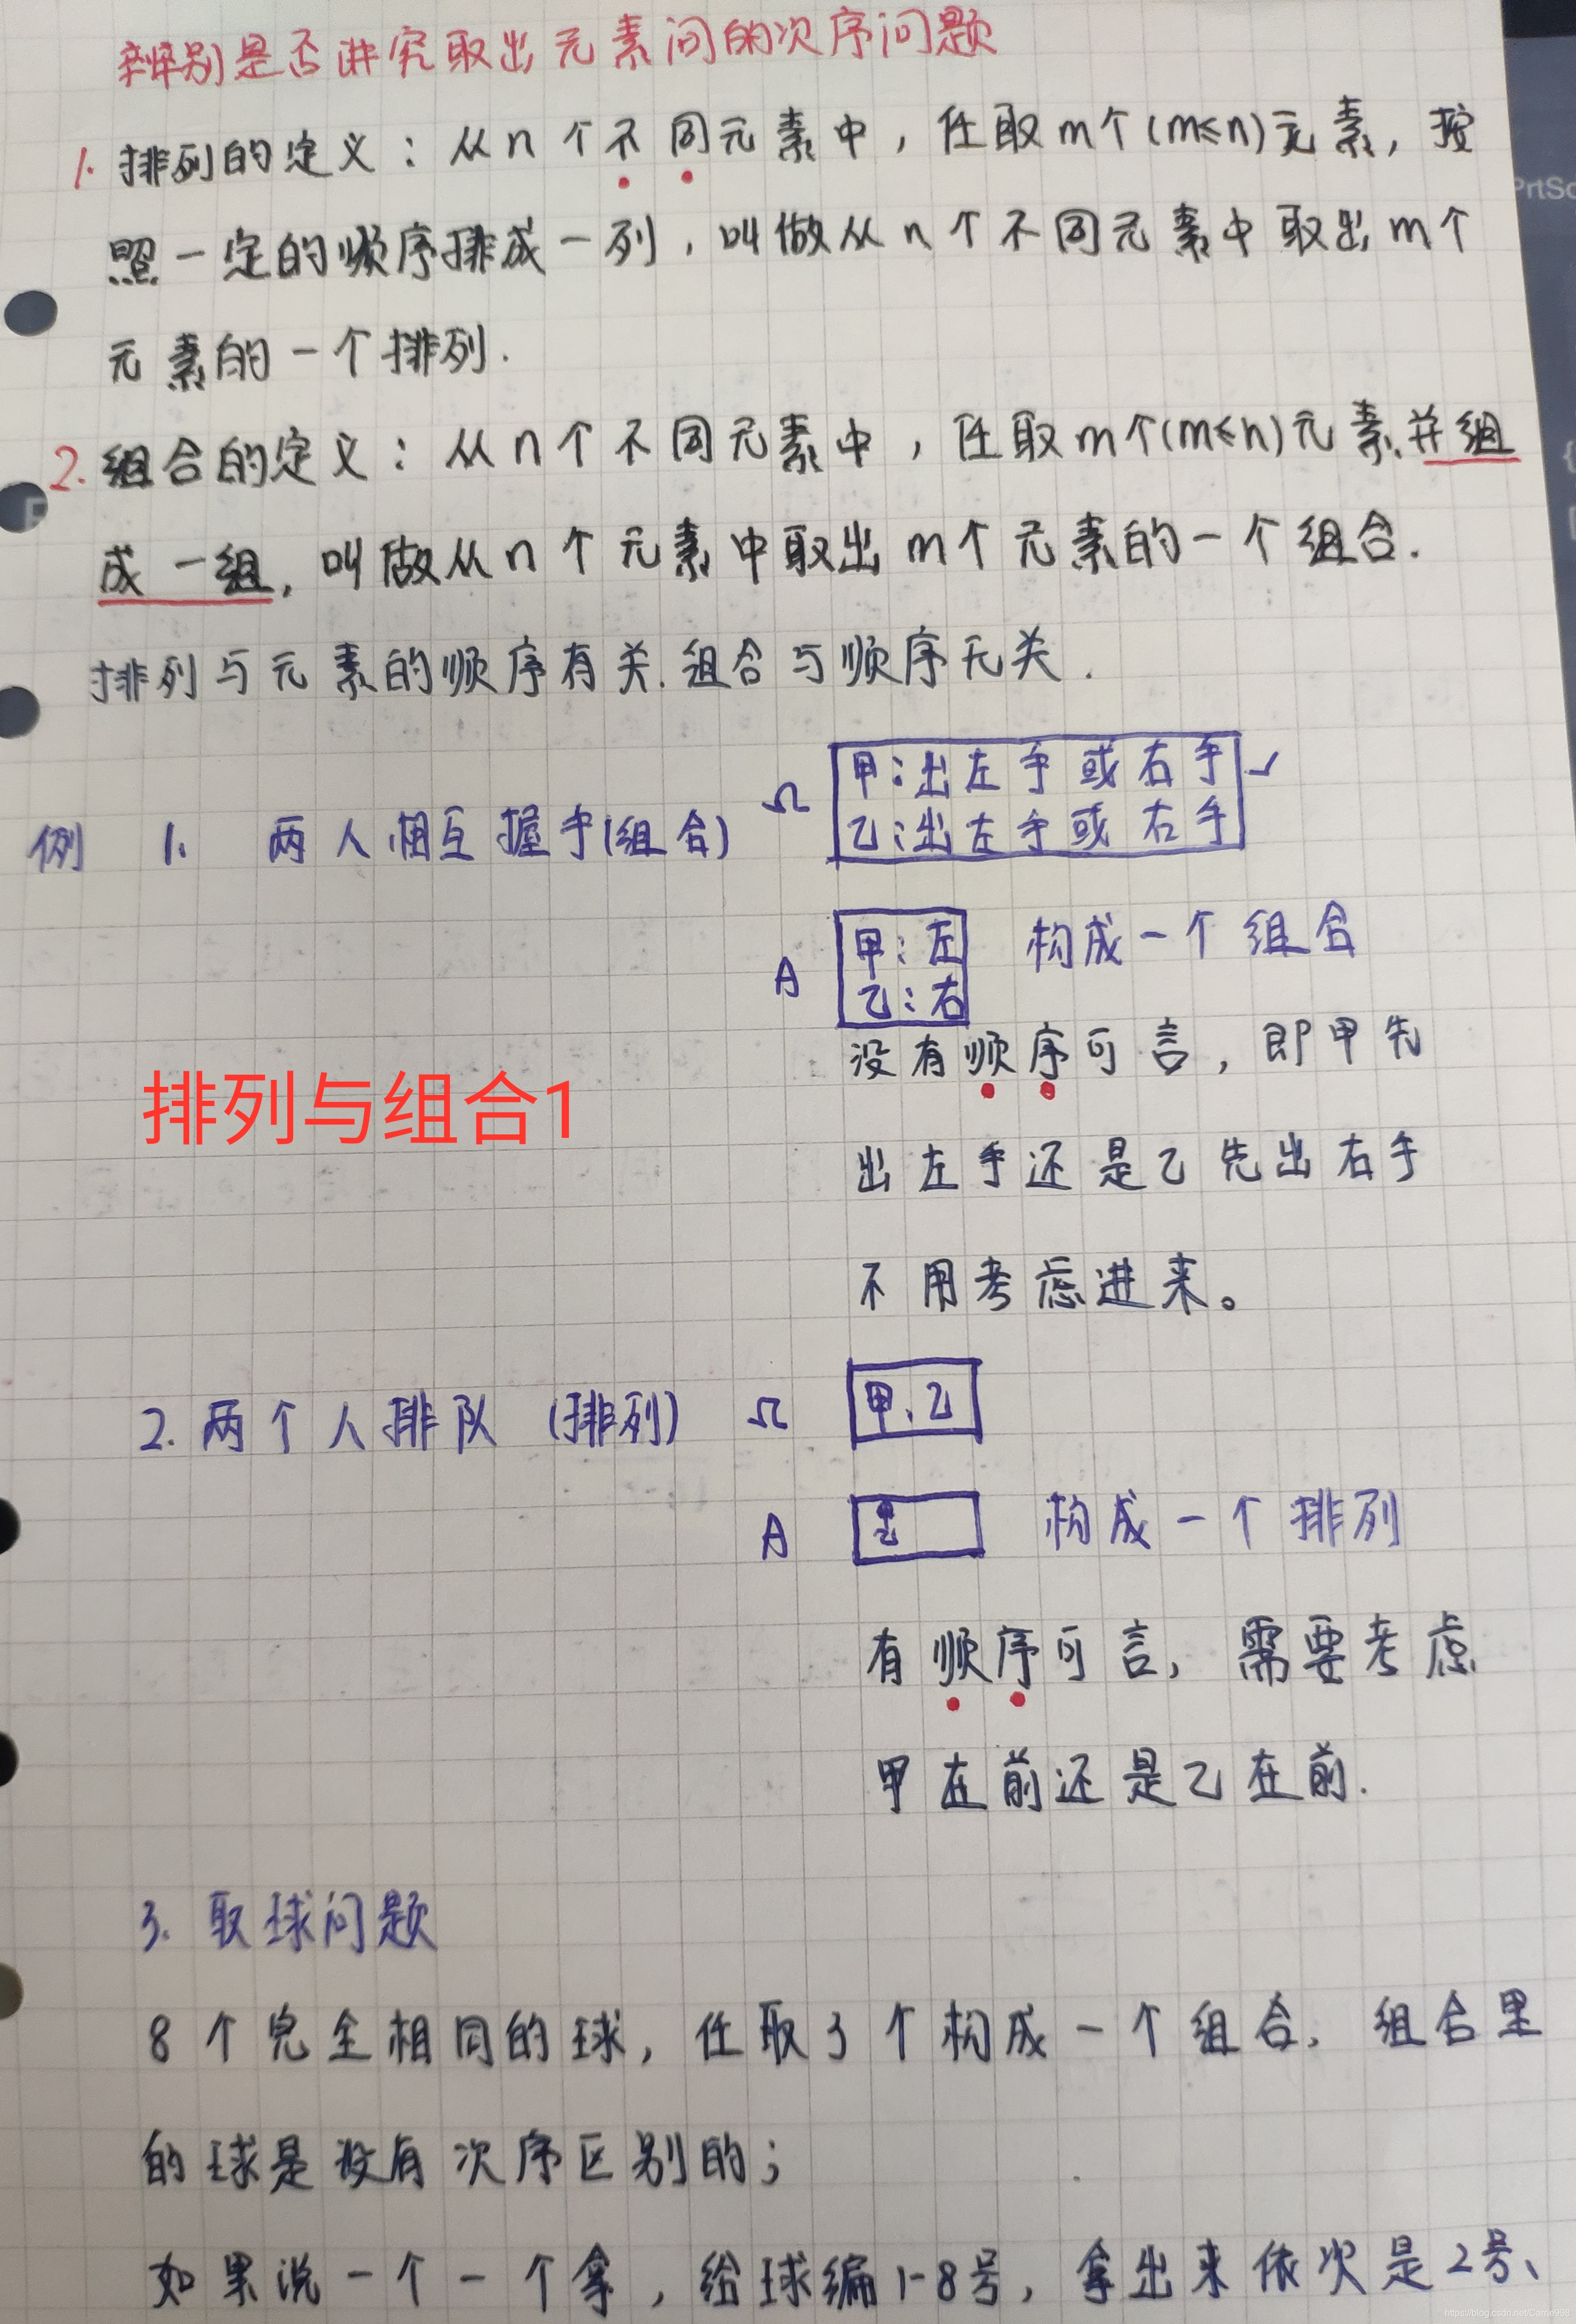 辨别是否讲究取出元素间的次序问题
1. 排列的定义：从n个不同元素中，任取m个(m≤n)元素，按
照一定的顺序排成一列，叫做从n个不同元素中取出m个
元素的一个排列.
2. 组合的定义：从n个不同元素中，任取m个(m≤n)元素.并组
成一组，叫做从n个元素中取出m个元素的一个组合.
排列与元素的顺序有关.组合与顺序无关.
例 1. 两人相互握手(组合) Ω 甲：出左手或右手 ✓
乙：出左手或右手
A 甲：左 构成一个组合
乙：右
没有顺序可言，即甲先
排列与组合1
出左手还是乙先出右手
不用考虑进来。
2. 两个人排队 (排列) Ω 甲、乙
A 甲乙 构成一个排列
有顺序可言，需要考虑
甲在前还是乙在前.
3. 取球问题
8个完全相同的球，任取3个构成一个组合，组合里
的球是没有次序区别的；
如果说一个一个拿，给球编1-8号，拿出来依次是2号、
PrtSc